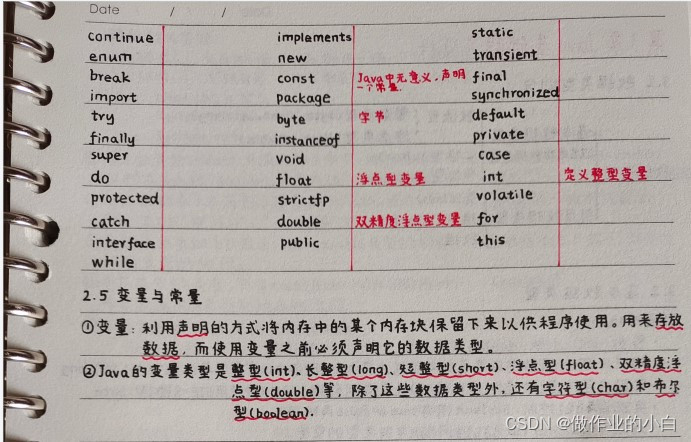 Date / / /
continue implements static
enum new transient
break const Java中无意义,声明一个常量 final
import package synchronized
try byte 字节 default
finally instanceof private
super void case
do float 浮点型变量 int 定义整型变量
protected strictfp volatile
catch double 双精度浮点型变量 for
interface public this
while
2.5 变量与常量
①变量:利用声明的方式将内存中的某个内存块保留下来以供程序使用。用来存放
数据,而使用变量之前必须声明它的数据类型。
②Java的变量类型是整型(int)、长整型(long)、短整型(short)、浮点型(float)、双精度浮
点型(double)等,除了这些数据类型外,还有字符型(char)和布尔
型(boolean).
CSDN @做作业的小白